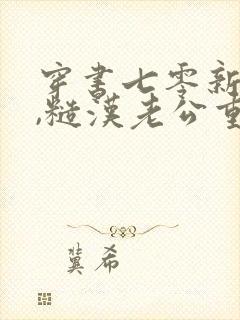 穿书七零新
,糙汉老公重
冀希